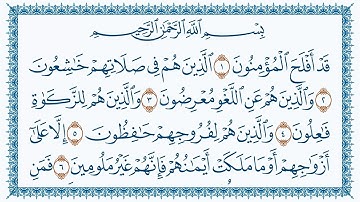 بِسْمِ اللَّهِ الرَّحْمَٰنِ الرَّحِيمِ
قَدْ أَفْلَحَ الْمُؤْمِنُونَ ١ الَّذِينَ هُمْ فِي صَلَاتِهِمْ خَاشِعُونَ
٢ وَالَّذِينَ هُمْ عَنِ اللَّغْوِ مُعْرِضُونَ ٣ وَالَّذِينَ هُمْ لِلزَّكَوٰةِ
فَاعِلُونَ ٤ وَالَّذِينَ هُمْ لِفُرُوجِهِمْ حَافِظُونَ ٥ إِلَّا عَلَىٰ
أَزْوَاجِهِمْ أَوْ مَا مَلَكَتْ أَيْمَانُهُمْ فَإِنَّهُمْ غَيْرُ مَلُومِينَ ٦ فَمَنِ